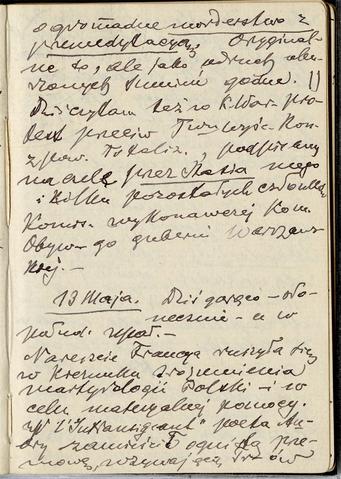 ogromadne morderstwo z
premedytacją. Oryginal-
ne to, ale jako odruch obu-
rzonych sumień godne. !!
Dziś czytam też w K. War. pro-
test przeciw
podpisany
na czele przez Stasia mego
i kilku pozostałych członków
Komis. wykonawczej Kom.
Obyw-go guberni Warszaws-
kiej. —
13 Maja. Dziś gorąco — sło-
necznie — a w
połud. upał. —
Nareszcie Francja ruszyła się
w kierunku zrozumienia
martyrologii Polski — i w
celu materyalnej pomocy.
W "l'Intransigeant" poeta Au-
dry zamieścił ognistą prze-
mowę, wzywającą